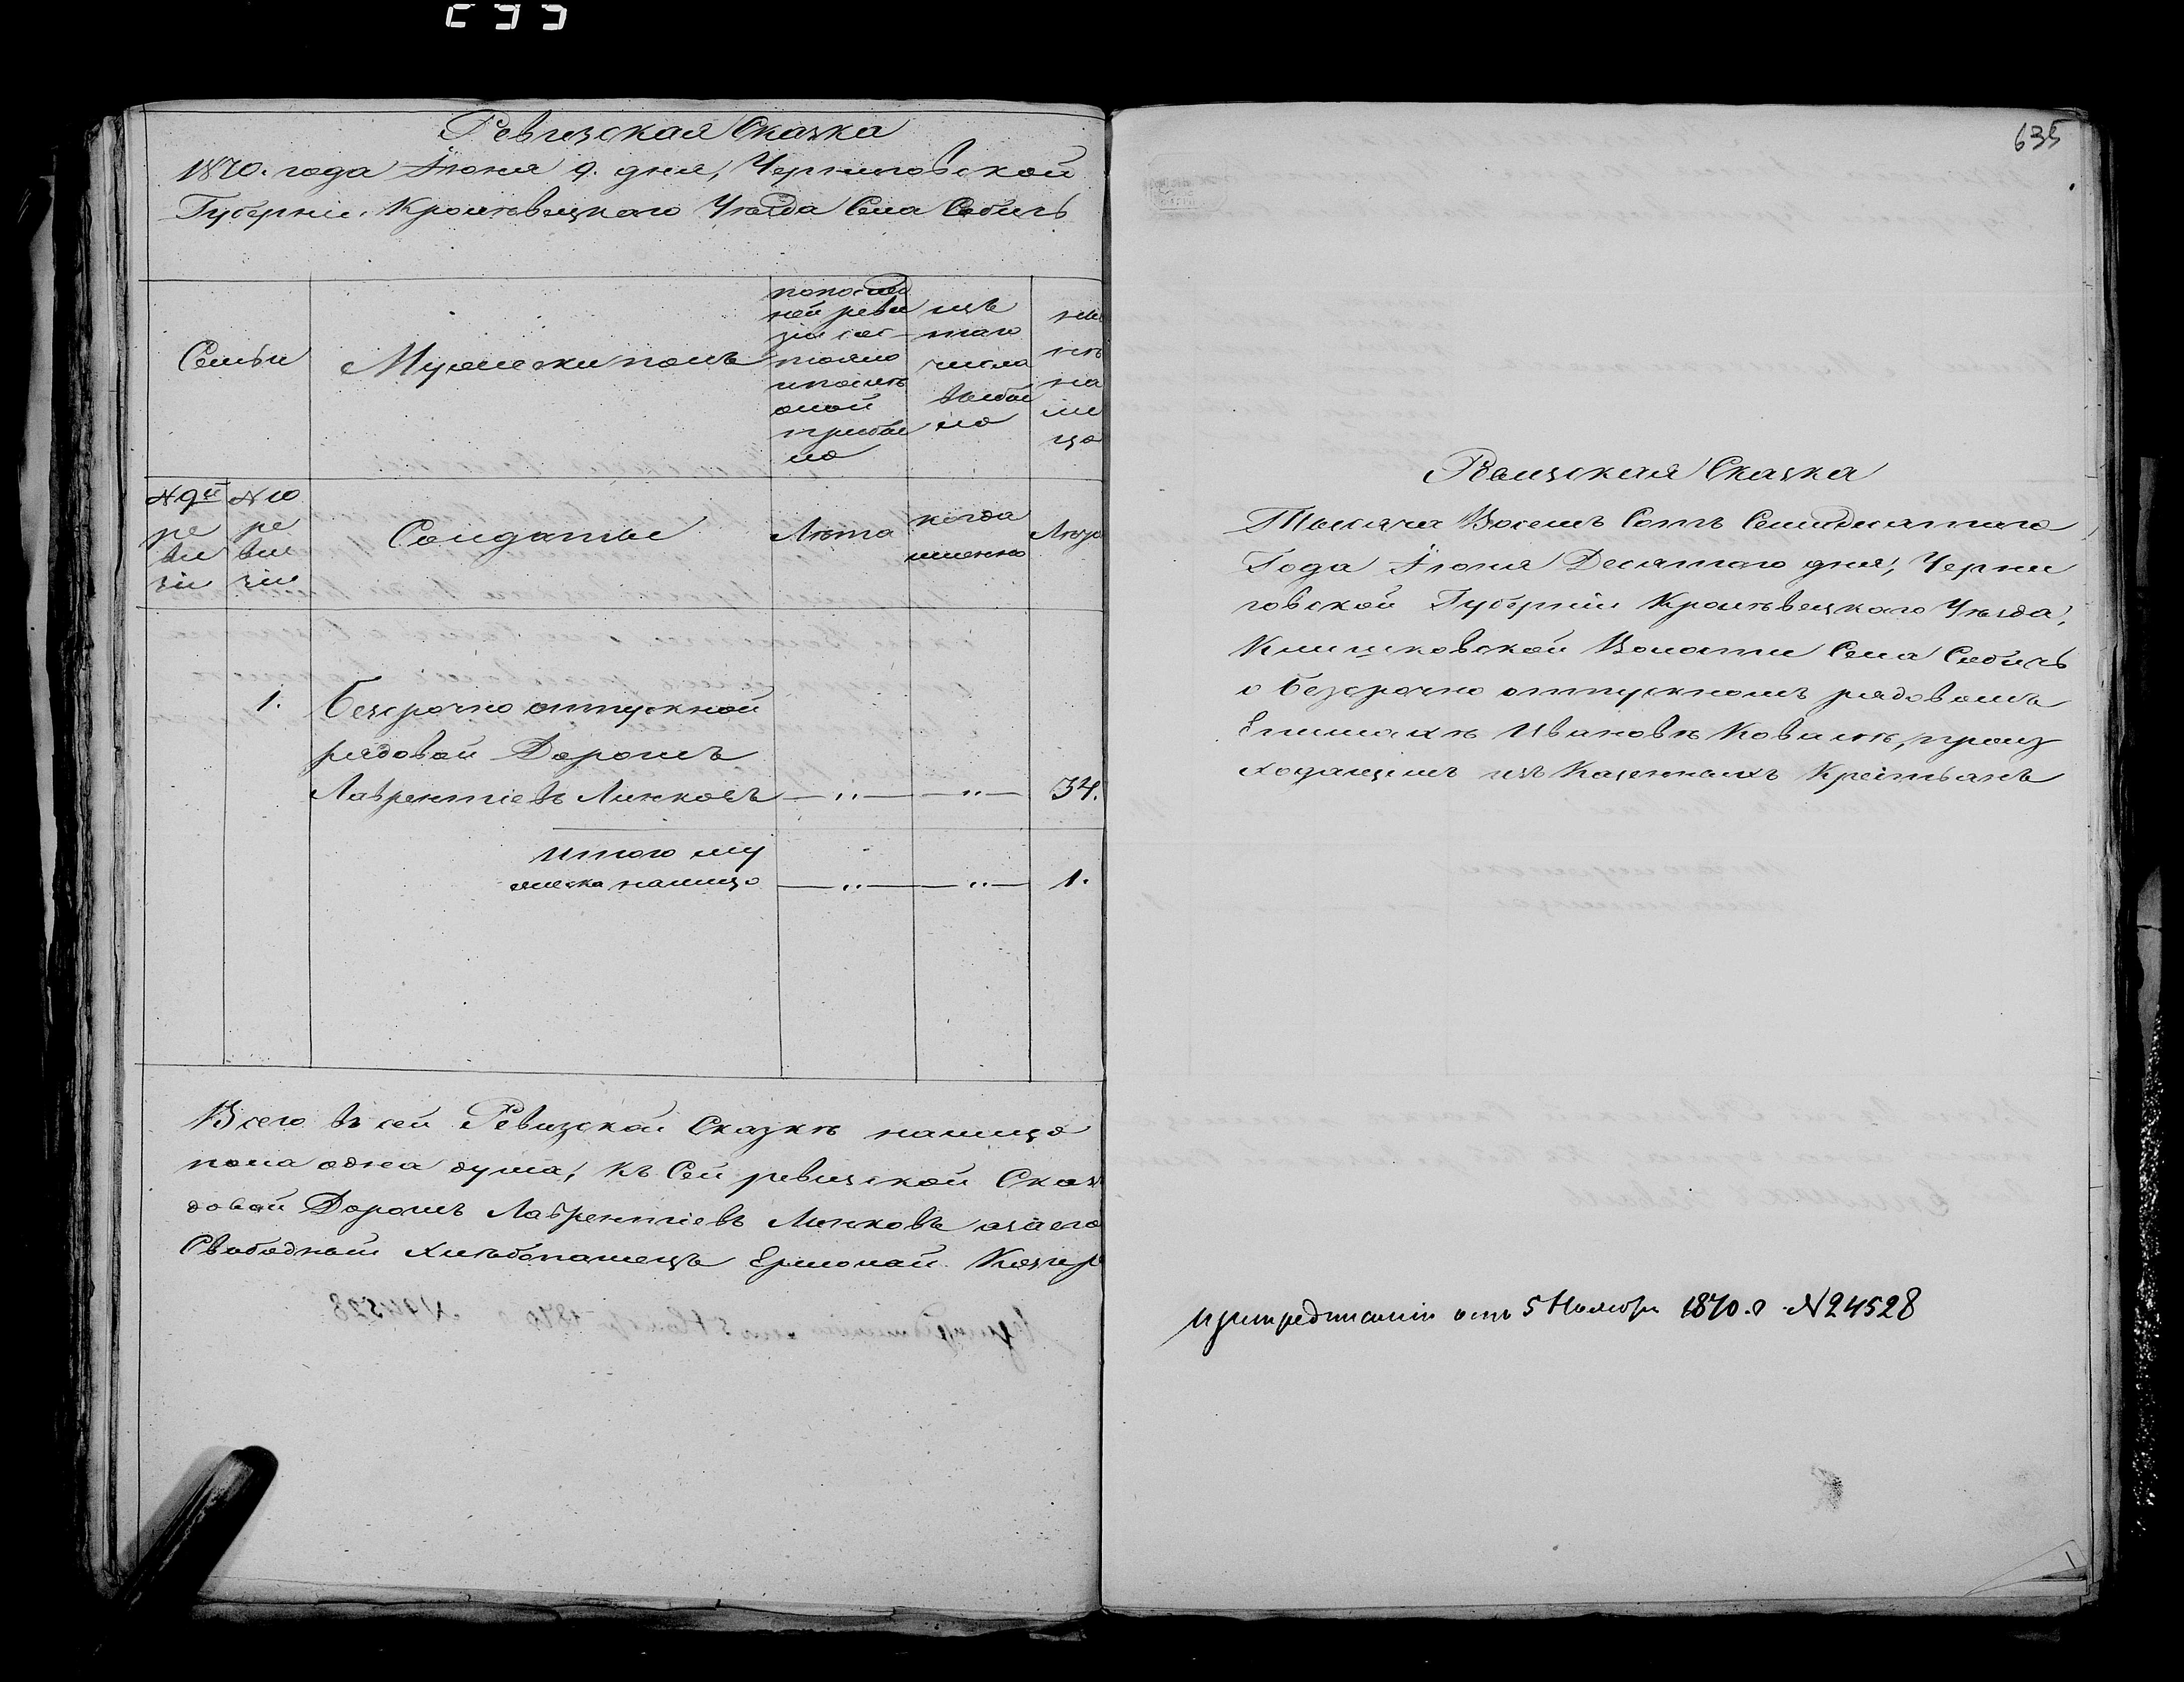 Ревизская Сказка
1870. года Іюня 9. дня, Черниговской
Губерніи. Кролѣвецкаго Уѣзда Села Собичъ
Семьи
Мужески полъ
попослед
ней реви
зіи сос
тояло
ипослѣ
оной
прибы
ло
изъ
того
числа
выбы
ло
ны
нѣ
на
ли
цо
№ 9й
ре
ви
зіи
№ 10
ре
ви
зіи
Солдаты
Лѣта
когда
именно
Лѣта
1.
Безсрочно отпускной
рядовой Дорошъ
Лаврентіевъ Линковъ — „ — — „ — 34.
Итого му
жеска налицо — „ — — „ — 1.
Всего въ сей Ревизской Сказкѣ налицо
пола одна душа, къ Сей ревизской Сказ
довой Дорошъ Лаврентіевъ Линковъ азаего
Свободный Хлѣбопашецъ Ермолай
635
Ревизская Сказка
Тысяча Восемъ Сотъ Семидесятаго
Года Іюня Десятаго дня, Черни
говской Губерніи Кролѣвецкаго Уѣзда,
Клишковской Волости Села Собичъ
о безсрочно отпускномъ рядовомъ
Ивановѣ Ковалѣ, произ
ходящемъ изъ Казенныхъ Крестьянъ
При предписаніи отъ 5 Ноября 1870. г №24528